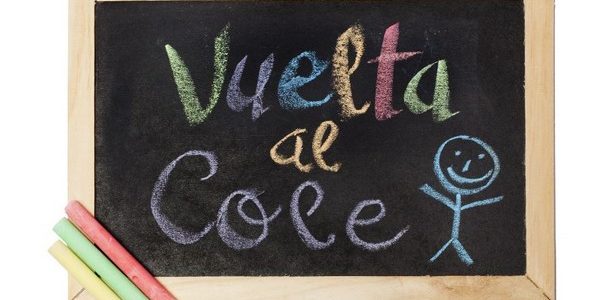 Vuelta
al
Cole